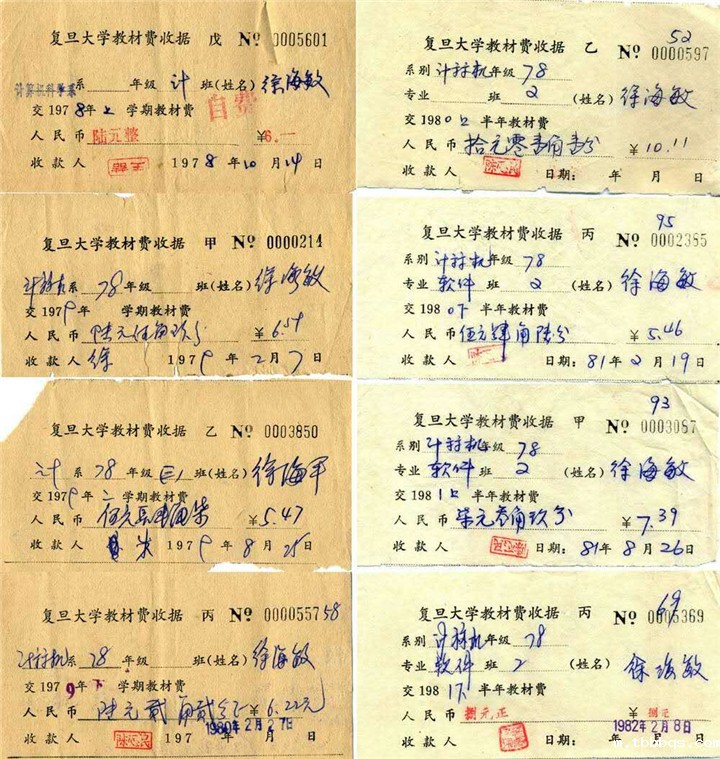 复旦大学教材费收据 戊 № 0005601
计算机科学系 年级 计 班(姓名) 徐海敏
交1978年上学期教材费 自费
人民币 陆元整 ¥6.—
收款人 1978年10月14日
复旦大学教材费收据 甲 № 0000214
计算机系 78年级 班(姓名) 徐海敏
交1979年 学期教材费
人民币 陆元伍角玖分 ¥6.59
收款人 徐 1979年2月7日
复旦大学教材费收据 乙 № 0003850
计系 78年级 班(姓名) 徐海
交1979年 学期教材费
人民币 伍元 ¥5.47
收款人 1979年8月 日
复旦大学教材费收据 丙 № 0000557 58
计算机系 78年级 班(姓名) 徐海敏
交1979年下学期教材费
人民币 陆元贰角贰分 ¥6.22元
收款人 197 1980年2月27日
52
复旦大学教材费收据 乙 № 0000597
系别 计算机 年级 78
专业 班 2 (姓名) 徐海敏
交1980上半年教材费
人民币 拾元零壹角壹分 ¥10.11
收款人 日期: 年 月 日
95
复旦大学教材费收据 丙 № 0002385
系别 计算机 年级 78
专业 软件 班 2 (姓名) 徐海敏
交1980下半年教材费
人民币 伍元肆角陆分 ¥5.46
收款人 日期: 81年2月19日
93
复旦大学教材费收据 甲 № 0003087
系别 计算机 年级 78
专业 软件 班 2 (姓名) 徐海敏
交1981上半年教材费
人民币 柒元叁角玖分 ¥7.39
收款人 日期: 81年8月26日
69
复旦大学教材费收据 丙 № 0005369
系别 计算机 年级 78
专业 软件 班 2 (姓名) 徐海敏
交1981下半年教材费
人民币 捌元正 ¥捌元
收款人 日期: 1982年2月8日
年 月 日